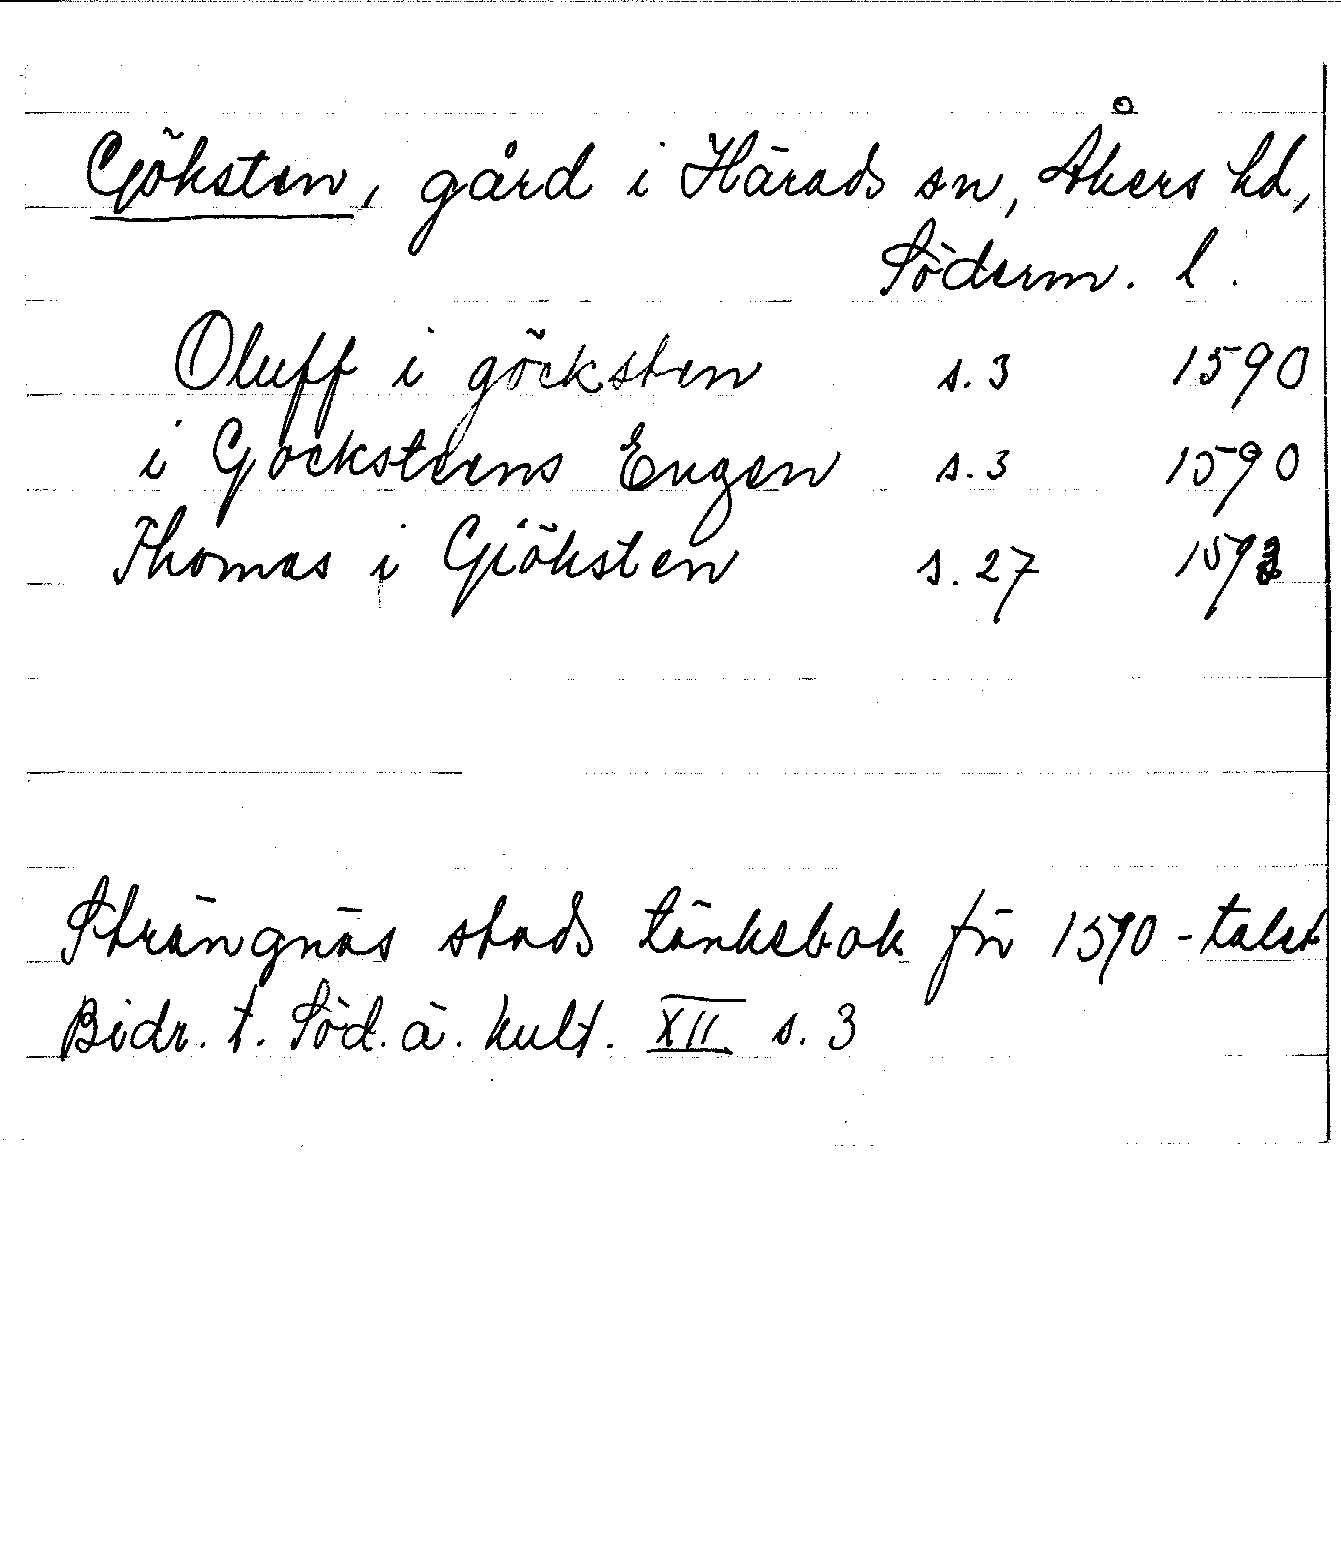 Gjöksten, gård i Härads sn, Åkers hd,
Söderm. l.
Oluff i göcksten s.3 1590
i Gocksteens Engen s.3 1590
Thomas i Gjöksten s.27
Strängnäs stads tänkebok för 1590-talet
Bidr. t. Söd. ä. kult. XII s. 3